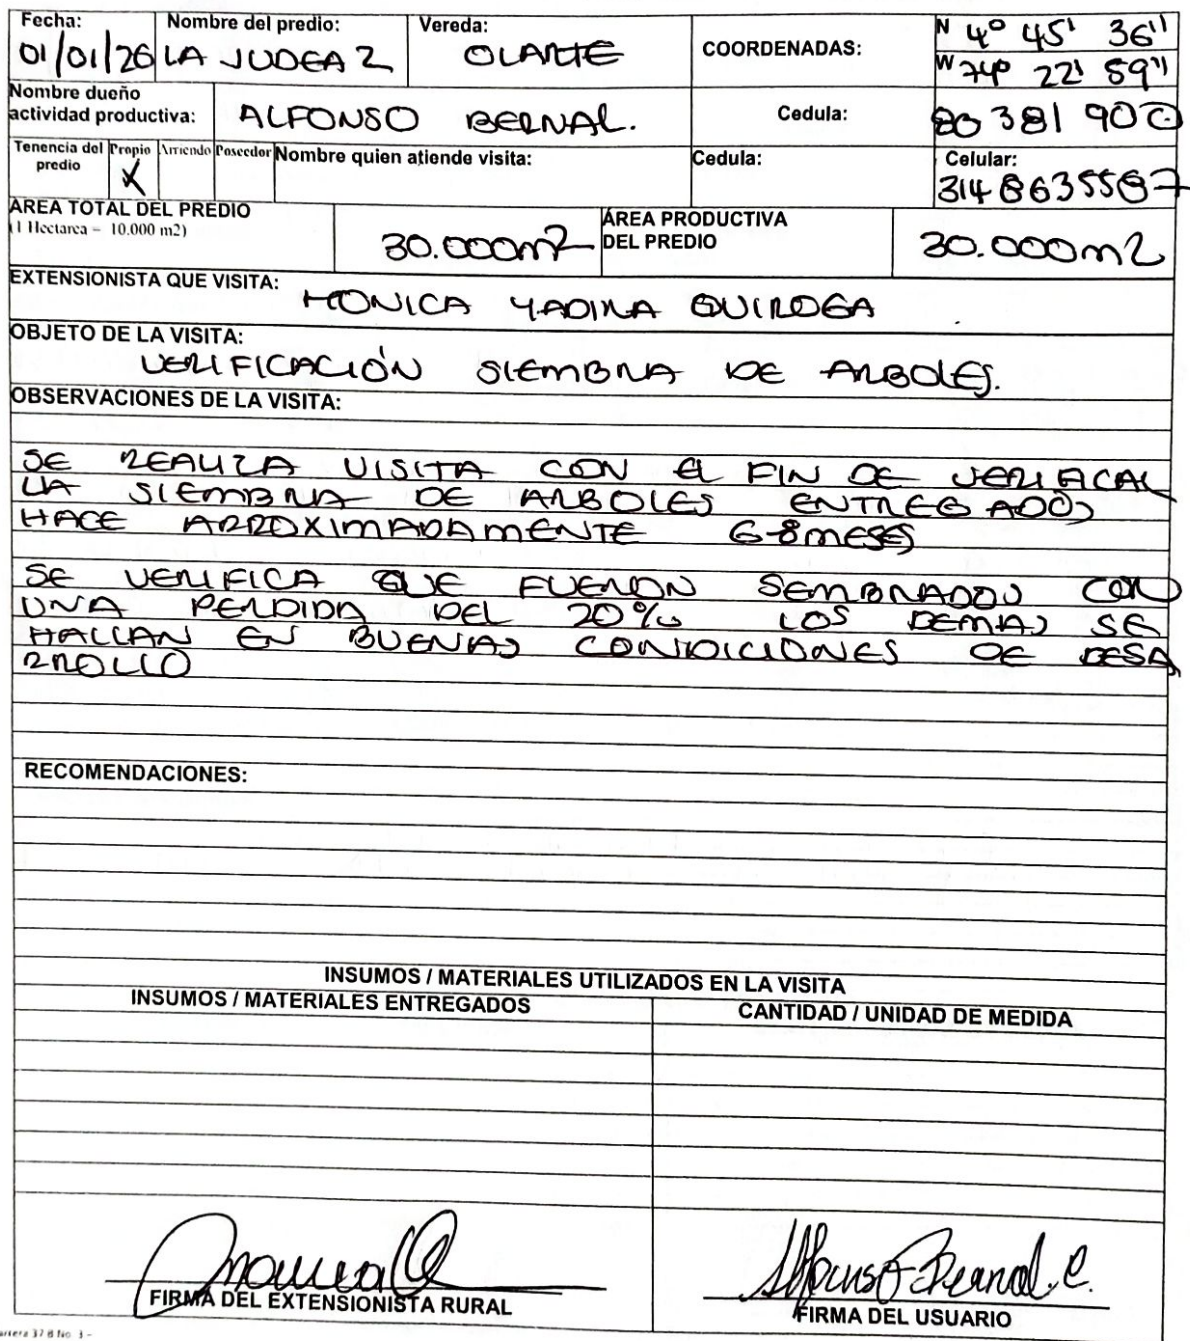 Fecha: Nombre del predio: Vereda: COORDENADAS: N 4° 45' 36"
01/01/26 LA JUDEA 2 OLARTE W 74° 22' 59"
Nombre dueño
actividad productiva: ALFONSO BERNAL. Cedula: 80 381 900
Tenencia del predio Propio Arriendo Poseedor Nombre quien atiende visita: Cedula: Celular:
X 314 8635587
ÁREA TOTAL DEL PREDIO
(1 Hectarea = 10.000 m2) 30.000m2 ÁREA PRODUCTIVA DEL PREDIO 30.000m2
EXTENSIONISTA QUE VISITA: MONICA YADIRA QUIROGA
OBJETO DE LA VISITA:
VERIFICACIÓN SIEMBRA DE ARBOLES.
OBSERVACIONES DE LA VISITA:
SE REALIZA VISITA CON EL FIN DE VERIFICAR
LA SIEMBRA DE ARBOLES ENTREGADOS
HACE APROXIMADAMENTE 6-8 MESES
SE VERIFICA QUE FUERON SEMBRADOS CON
UNA PERDIDA DEL 20% LOS DEMAS SE
HALLAN EN BUENAS CONDICIONES DE DESA
RROLLO
RECOMENDACIONES:
INSUMOS / MATERIALES UTILIZADOS EN LA VISITA
INSUMOS / MATERIALES ENTREGADOS CANTIDAD / UNIDAD DE MEDIDA
Alfonso Bernal C.
FIRMA DEL EXTENSIONISTA RURAL FIRMA DEL USUARIO